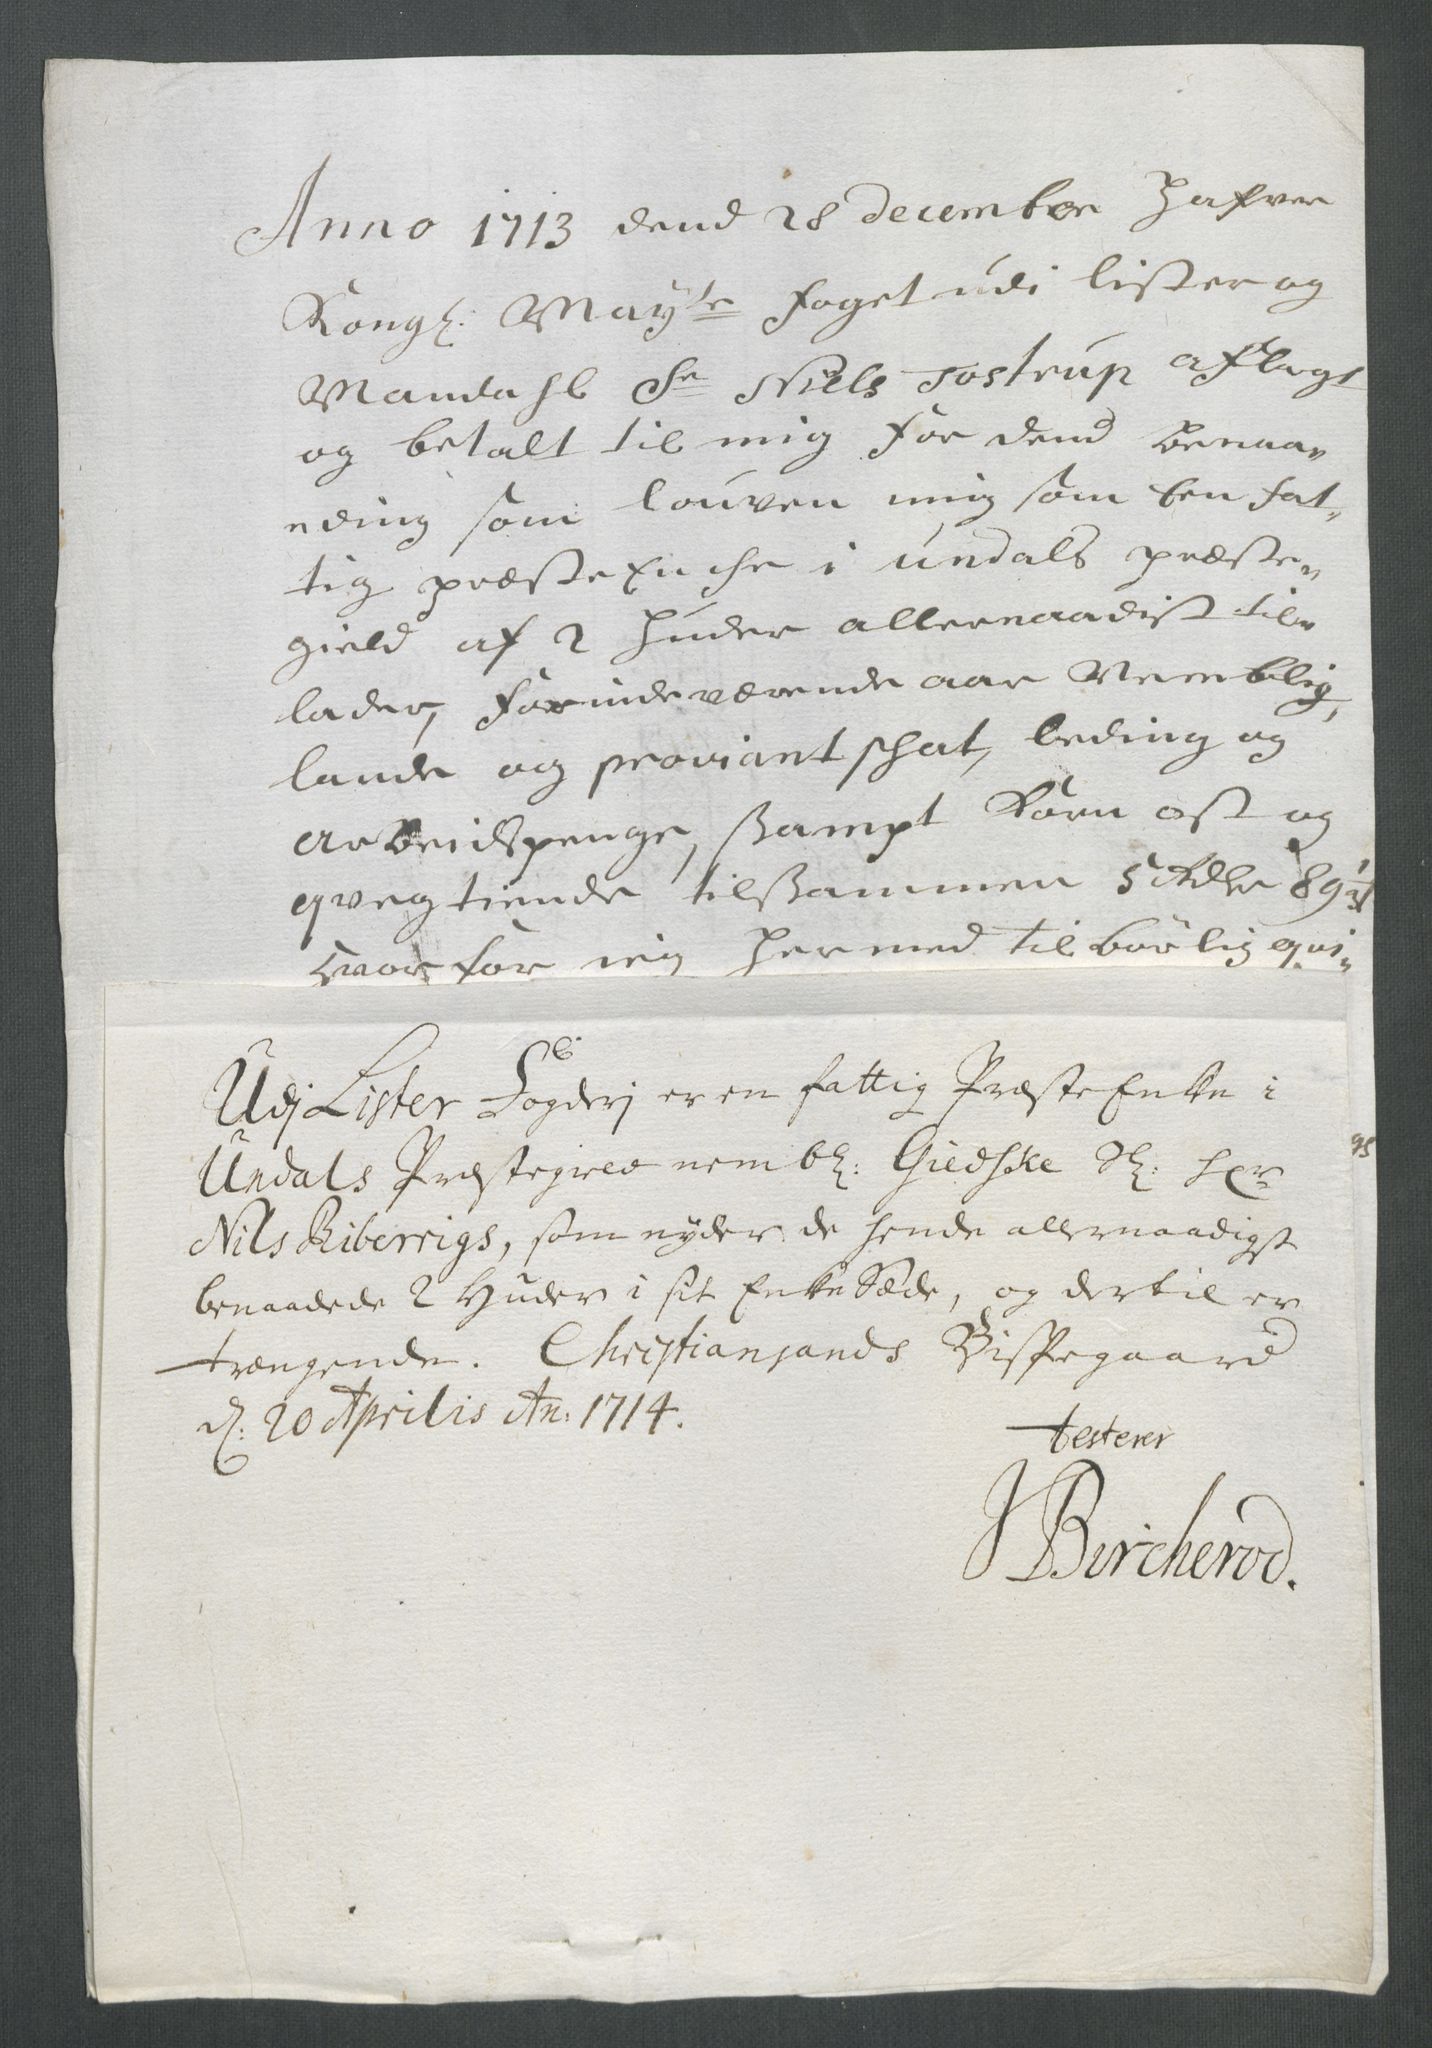 Anno 1713 dend 28 december hafver
Kongl: May:ts foget udi lister og
Mandahl Sr Niels Tostrup aflagt
og betalt til mig for dend benaa„
ding som louven mig som een fat„
tig præste Enche i undals præste„
gield af 2 huder allernaadist til„
lader, for indeværende aar Nemblig,
lande og proviant schat, leding og
arbeidspenge, sampt Korn ost og
qveg tiende tilsammen 5 Rdlr 89½ s
hvor for ieg her med tilbørlig qvi„
Udj Lister Fogderj er en fattig Præste Enke i
Undals Præstegield nembl: Giedske Sl: Her
Nils Riberrigs, som nyder de hende allernaadigst
benaadede 2 Huder i sit Enke Sæde, og dertil er
trængende. Christiansands Bispegaard
d: 20 Aprilis An: 1714.
testerer
J Bircherod.